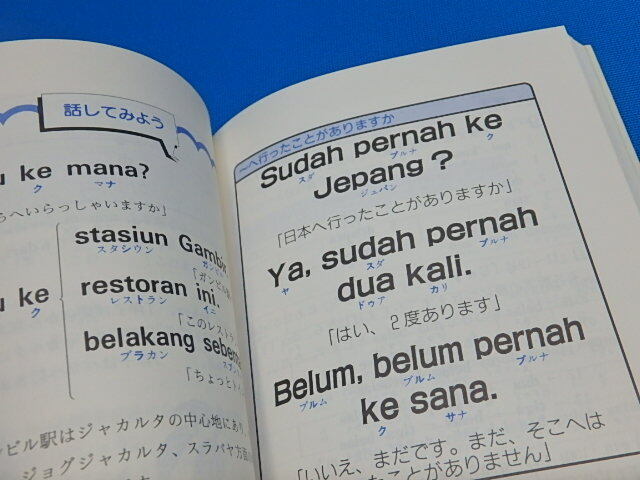 話してみよう
ke mana?
ク マナ
らへいらっしゃいますか」
stasiun Gambir
スタシウン
ke
ク
restoran ini.
レストラン イニ
「このレストラ
belakang
ブラカン
「ちょっと
ビル駅はジャカルタの中心地にあり
ジョグジャカルタ、スラバヤ方面
〜へ行ったことがありますか
Sudah pernah ke
スダ プルナ ク
Jepang?
ジュパン
「日本へ行ったことがありますか」
Ya, sudah pernah
ヤ スダ プルナ
dua kali.
ドゥア カリ
「はい、2度あります」
Belum, belum pernah
ブルム ブルム プルナ
ke sana.
ク サナ
「いいえ、まだです。まだ、そこへは
たことがありません」